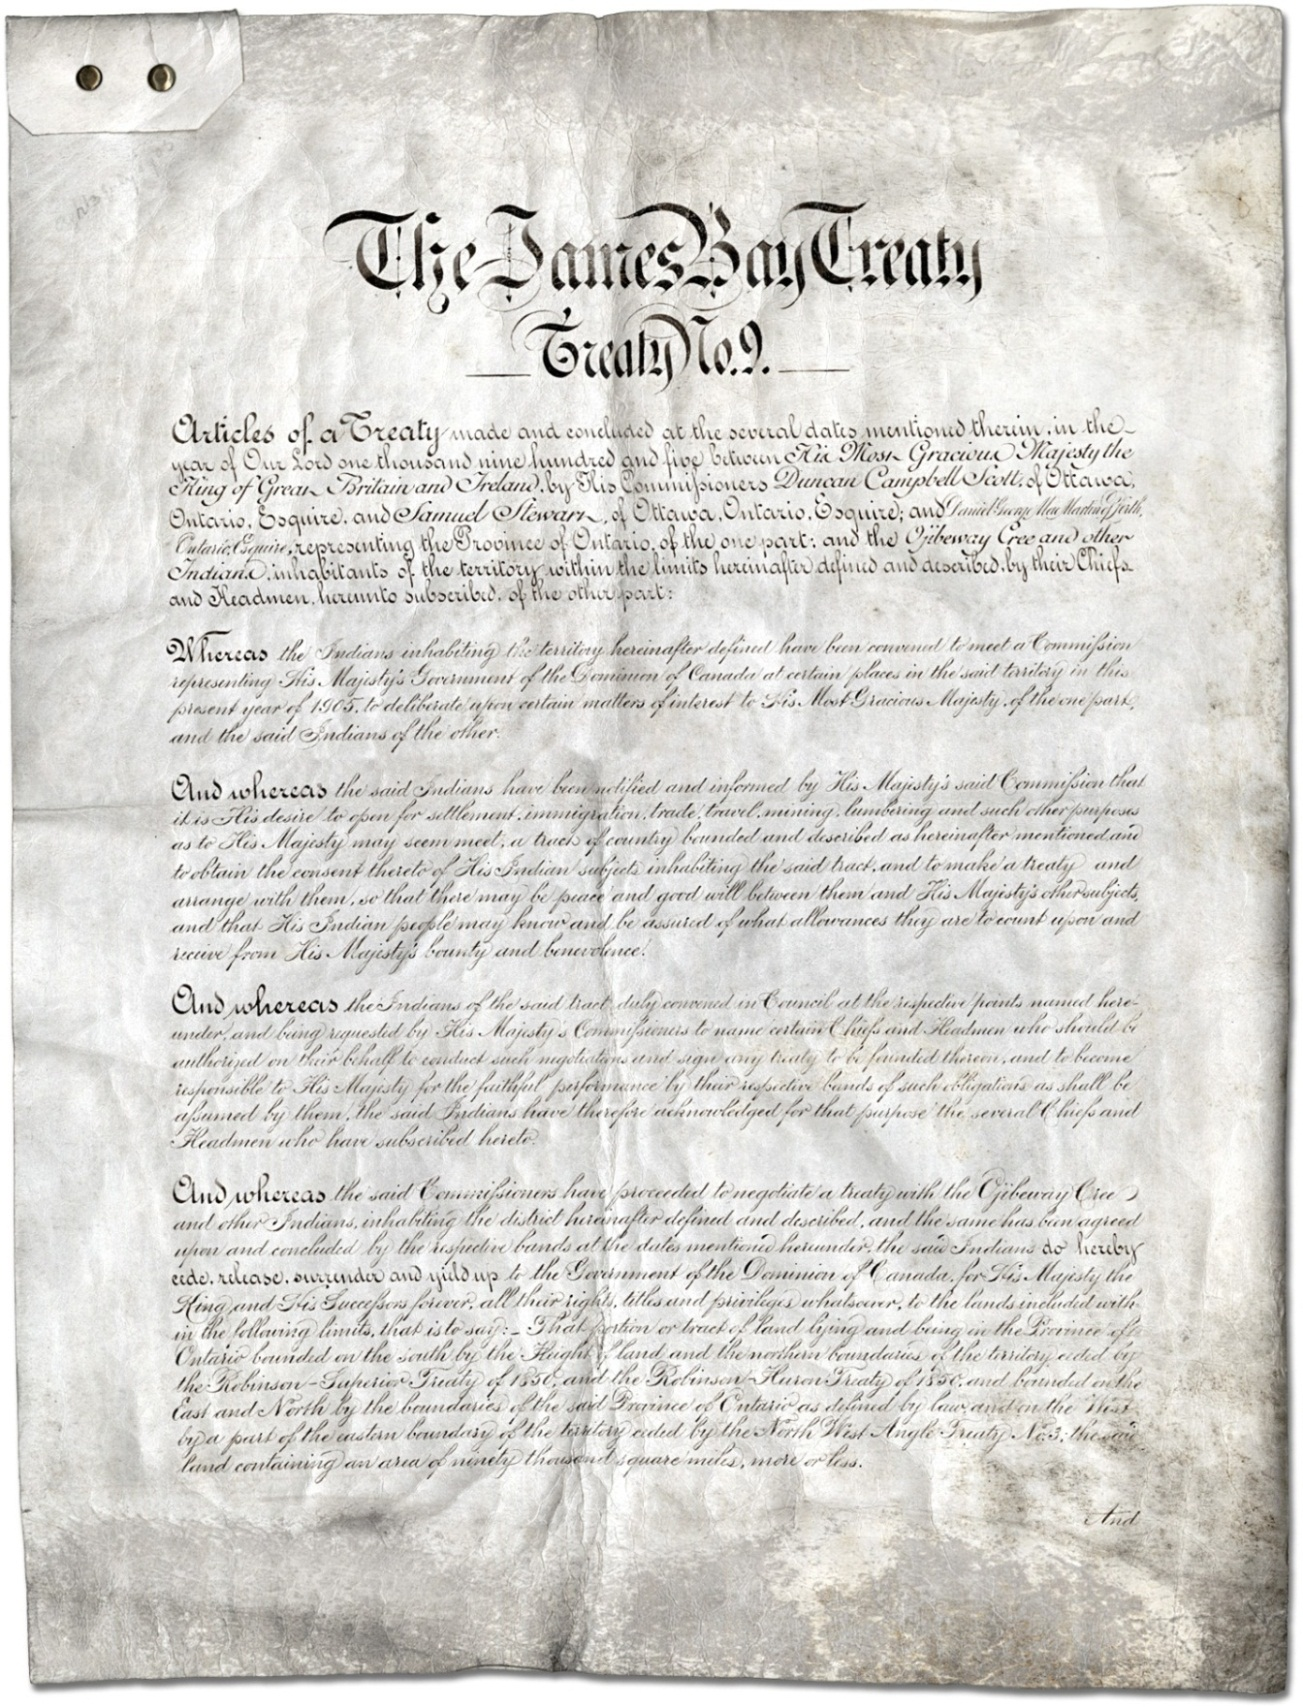 The James Bay Treaty
Treaty No. 9.
Articles of a Treaty made and concluded at the several dates mentioned therein, in the
year of Our Lord one thousand nine hundred and five between His Most Gracious Majesty the
King of Great Britain and Ireland, by His Commissioners Duncan Campbell Scott, of Ottawa,
Ontario, Esquire, and Samuel Stewart, of Ottawa, Ontario, Esquire; and Daniel George MacMartin of Perth,
Ontario, Esquire, representing the Province of Ontario, of the one part: and the Ojibeway Cree and other
Indians, inhabitants of the territory within the limits hereinafter defined and described, by their Chiefs
and Headmen, hereunto subscribed, of the other part:
Whereas the Indians inhabiting the territory hereinafter defined have been convened to meet a Commission
representing His Majesty's Government of the Dominion of Canada at certain places in the said territory in this
present year of 1905, to deliberate upon certain matters of interest to His Most Gracious Majesty, of the one part,
and the said Indians of the other.
And whereas the said Indians have been notified and informed by His Majesty's said Commission that
it is His desire to open for settlement, immigration, trade, travel, mining, lumbering and such other purposes
as to His Majesty may seem meet, a tract of country bounded and described as hereinafter mentioned and
to obtain the consent thereto of His Indian subjects inhabiting the said tract, and to make a treaty and
arrange with them, so that there may be peace and good will between them and His Majesty's other subjects,
and that His Indian people may know and be assured of what allowances they are to count upon and
receive from His Majesty's bounty and benevolence.
And whereas the Indians of the said tract, duly convened in Council at the respective points named here-
under, and being requested by His Majesty's Commissioners to name certain Chiefs and Headmen who should be
authorized on their behalf to conduct such negotiations and sign any treaty to be founded thereon, and to become
responsible to His Majesty for the faithful performance by their respective bands of such obligations as shall be
assumed by them, the said Indians have therefore acknowledged for that purpose the several Chiefs and
Headmen who have subscribed hereto.
And whereas the said Commissioners have proceeded to negotiate a treaty with the Ojibeway Cree
and other Indians, inhabiting the district hereinafter defined and described, and the same has been agreed
upon and concluded by the respective bands at the dates mentioned hereunder, the said Indians do hereby
cede, release, surrender and yield up to the Government of the Dominion of Canada, for His Majesty the
King and His Successors forever, all their rights, titles and privileges whatsoever, to the lands included with-
in the following limits, that is to say:- That portion or tract of land lying and being in the Province of
Ontario bounded on the south by the Height of land and the northern boundaries of the territory ceded by
the Robinson-Superior Treaty of 1850, and the Robinson-Huron Treaty of 1850, and bounded on the
East and North by the boundaries of the said Province of Ontario as defined by law, and on the West
by a part of the eastern boundary of the territory ceded by the North West Angle Treaty No. 3; the said
land containing an area of ninety thousand square miles, more or less.
And